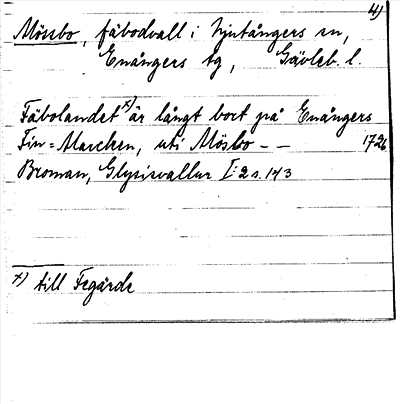 4)
Mössbo, fäbodvall i Njutångers sn,
Enångers tg, Gävleb. l.
Fäbolandet x) är långt bort på Enångers
Fin=Marcken, uti Mösbo - - 1726
Broman, Glysisvallur I:2 s. 143
x) till Fegärde